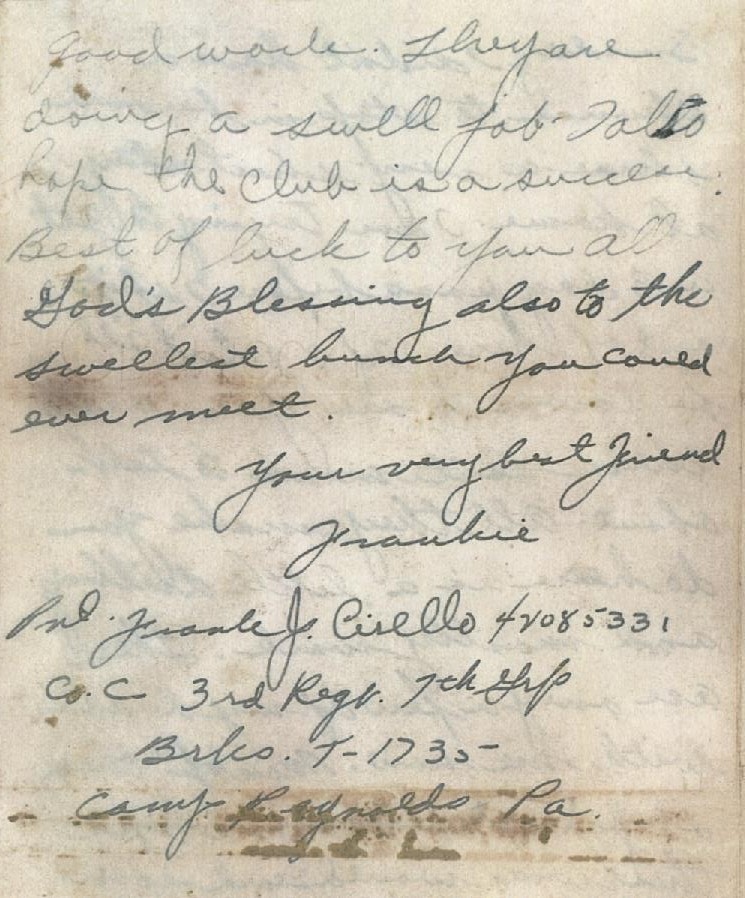 good work. They are
doing a swell job. I also
hope the club is a success.
Best of luck to you all
God's Blessing also to the
swellest bunch you could
ever meet.
Your very best friend
Frankie
Pvt. Frank J. Cirello 42085331
Co. C 3rd Regt. 7th Grp
Brks. T-1735
Camp Reynolds Pa.